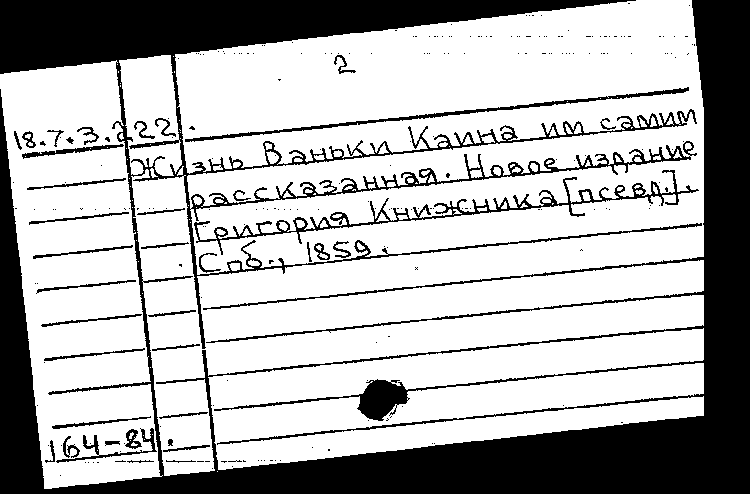 2
18.7.3.222.
Жизнь Ваньки Каина им самим
рассказанная. Новое издание
Григория Книжника [псевд.].
Спб., 1859.
164-84.